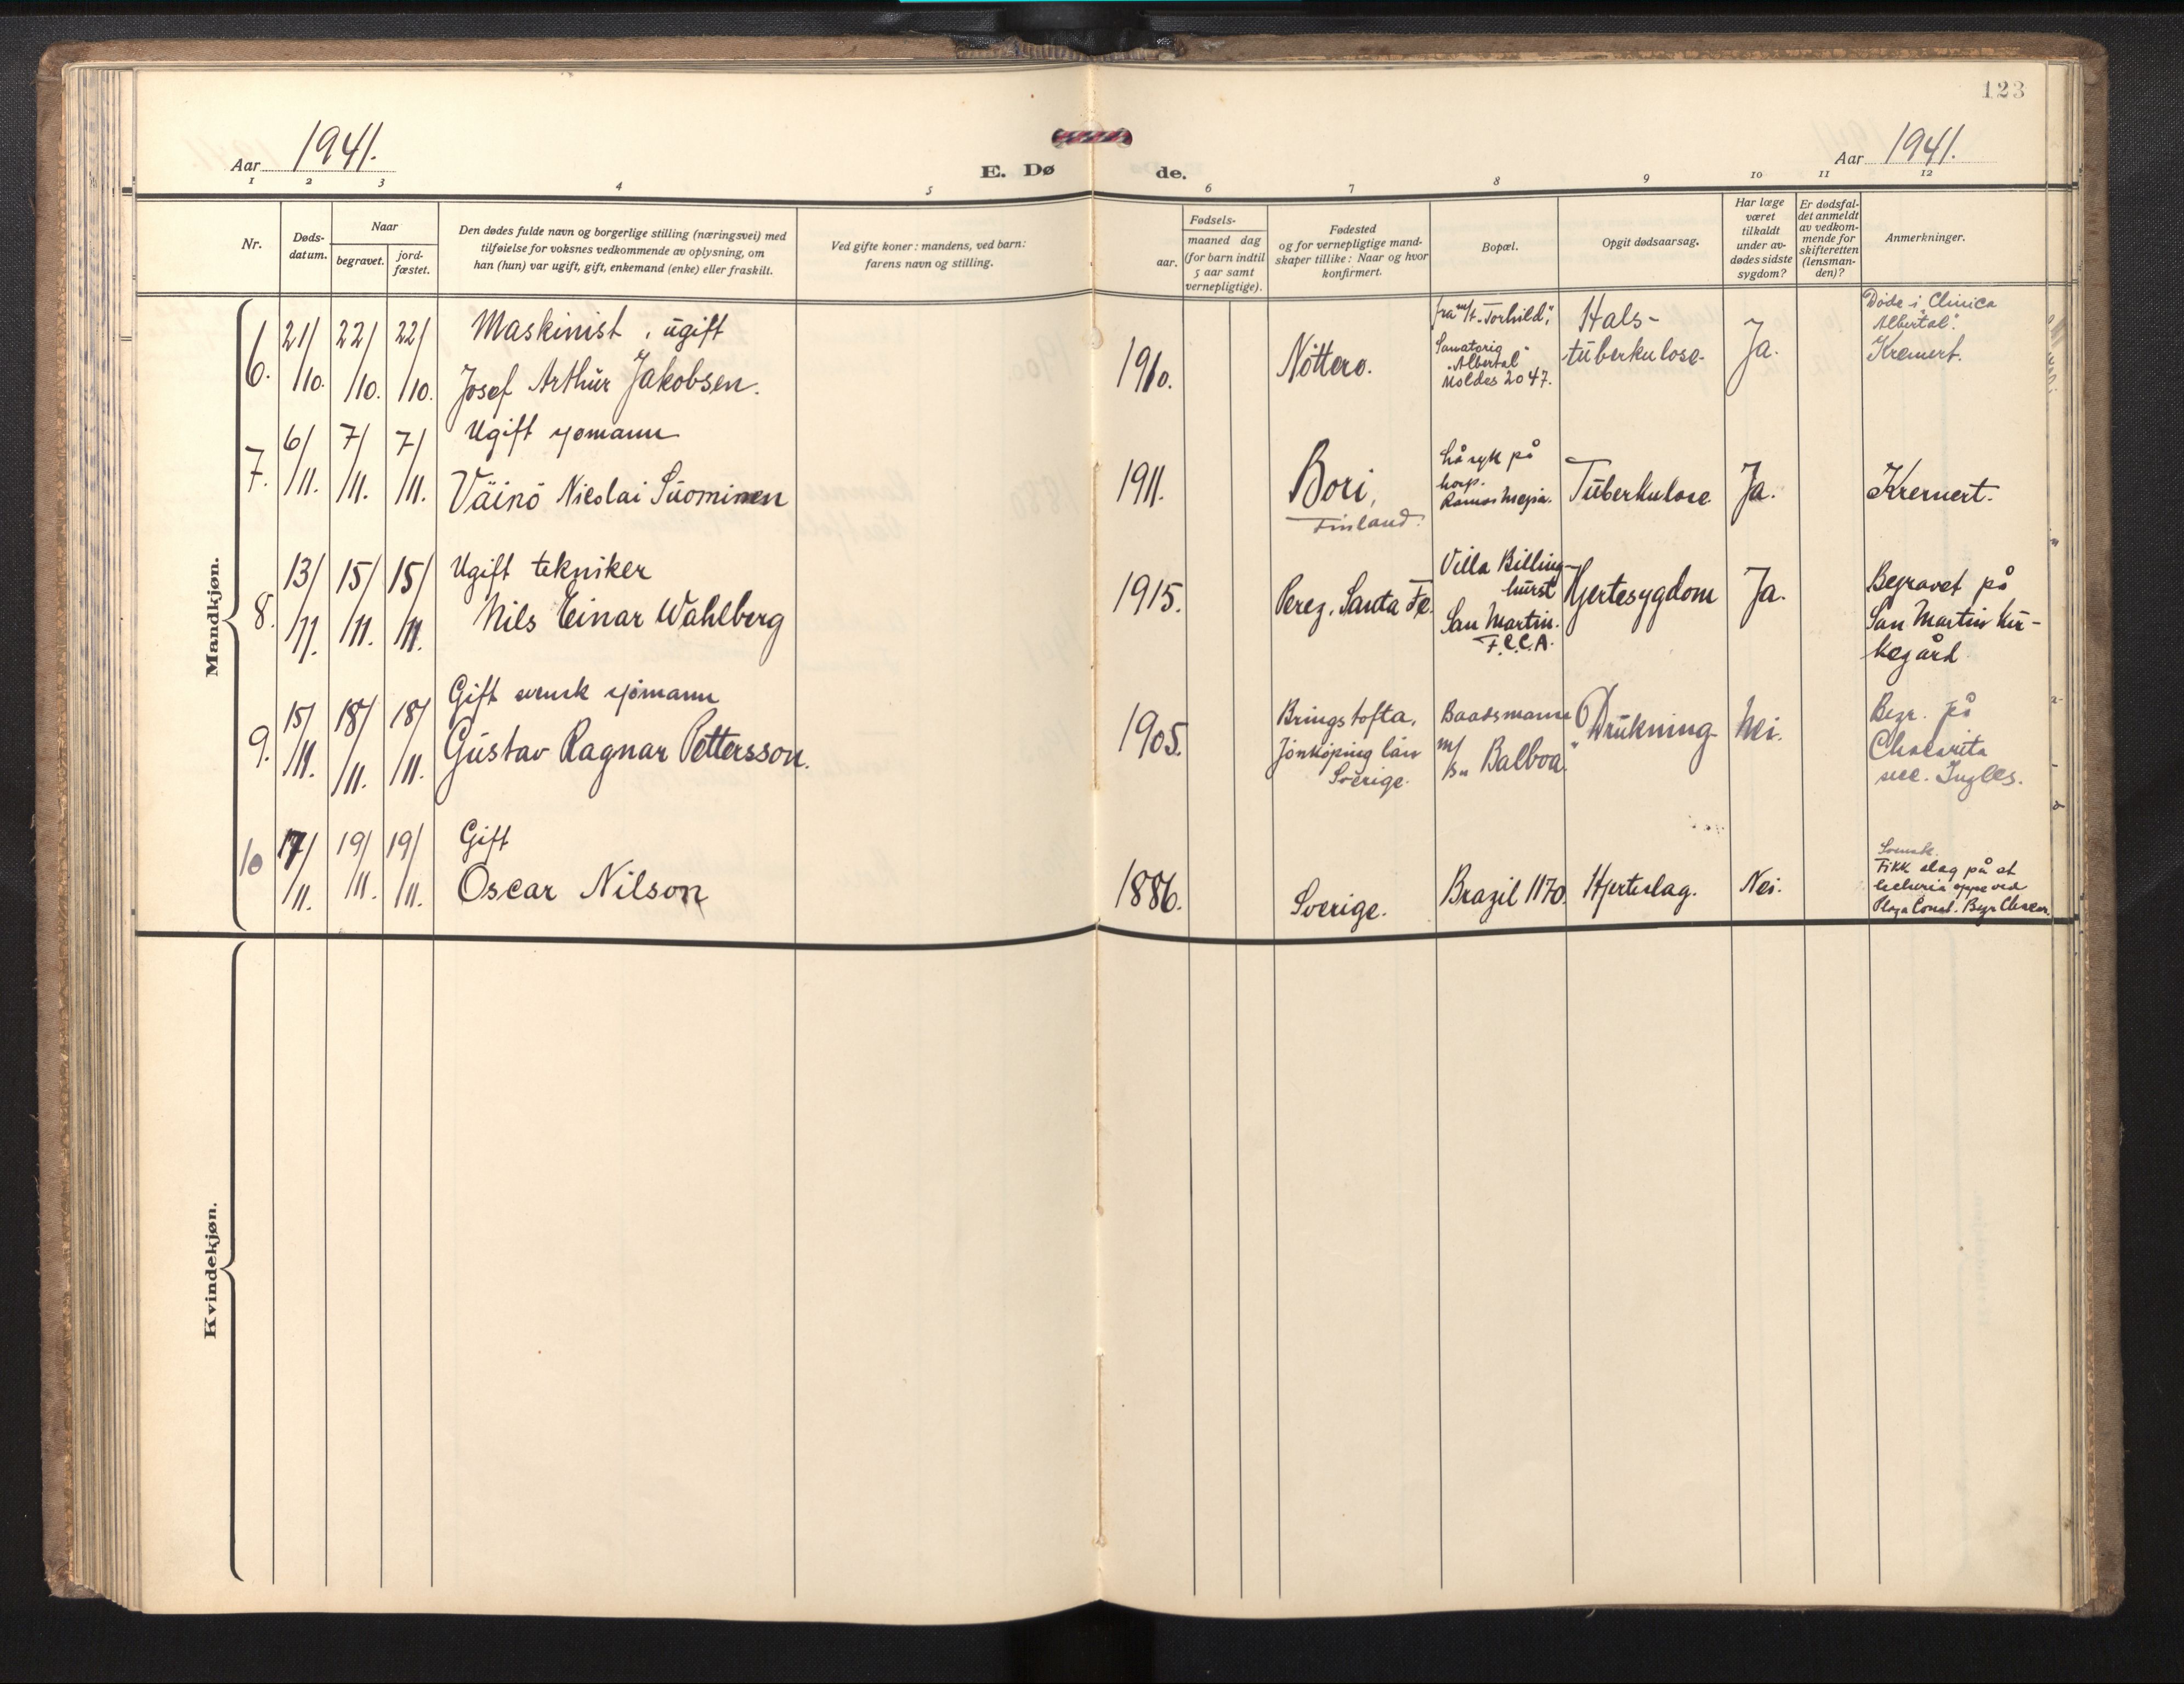 123
Aar 1941.
E. Døde.
Aar 1941.
1 2 3 4 5 6 7 8 9 10 11 12
Nr.
Døds-
datum.
Naar
begravet.
jord-
fæstet.
Den dødes fulde navn og borgerlige stilling (næringsvei) med
tilføielse for voksnes vedkommende av oplysning, om
han (hun) var ugift, gift, enkemand (enke) eller fraskilt.
Ved gifte koner: mandens, ved barn:
farens navn og stilling.
Fødsels-
aar.
maaned dag
(for barn indtil
5 aar samt
vernepligtige).
Fødested
og for vernepligtige mand-
skaper tillike: Naar og hvor
konfirmert.
Bopæl.
Opgit dødsaarsag.
Har læge
været
tilkaldt
under av-
dødes sidste
sygdom?
Er dødsfal-
det anmeldt
av vedkom-
mende for
skifteretten
(lensman-
den)?
Anmerkninger.
Mandkjøn.
6.
21/10. 22/10. 22/10.
Maskinist, ugift
Josef Arthur Jakobsen.
1910.
Nötterö.
fra m/t. "Torhild",
Sanatorio
"Albertal"
Moldes 2047.
Hals-
tuberkulose.
Ja.
Döde i Clinica
"Albertal".
Kremert.
7.
6/11. 7/11. 7/11.
Ugift sjömann
Väinö Nicolai Suominen
1911.
Bori,
Finland.
Lå syk på
hosp.
Ramos Mejia.
Tuberkulose
Ja.
Kremert.
8.
13/11. 15/11. 15/11.
Ugift tekniker
Nils Einar Wahlberg
1915.
Perez, Santa Fe.
Villa Billing-
hurst
San Martin.
F.C.C.A.
Hjertesygdom
Ja.
Begravet på
San Martin kir-
kegård
9.
15/11. 18/11. 18/11.
Gift svensk sjömann
Gustav Ragnar Pettersson.
1905.
Bringstofta,
Jönköping län
Sverige.
Baadsmann
m/s "Balboa".
Drukning
Nei.
Begr. på
Chacarita
sec. Ingles.
10
17/11. 19/11. 19/11.
Gift
Oscar Nilson
1886.
Sverige.
Brazil 1170.
Hjerteslag.
Nei.
Svensk.
Fikk slag på et
lecheria oppe ved
Plaza Const. Begr Chacar.
Kvindekjøn.